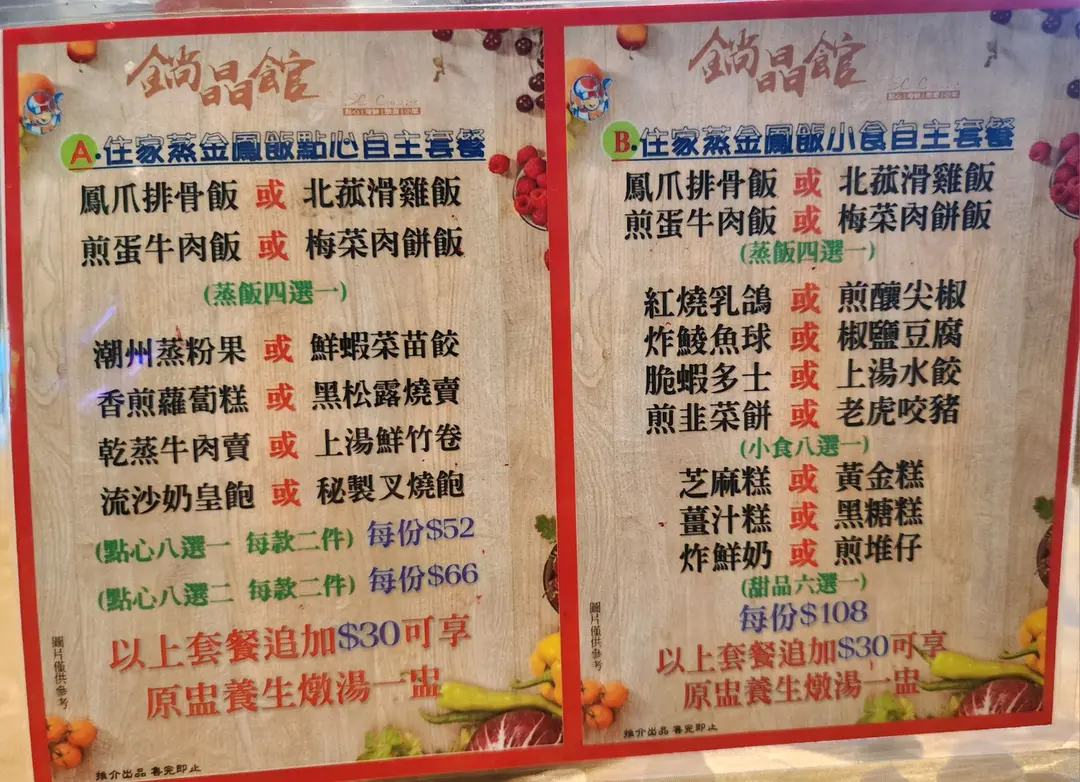 鐫晶館
點心 | 燉餸 | 飲茶 | 小菜
A.住家蒸金鳳飯點心自主套餐
鳳爪排骨飯 或 北菰滑雞飯
煎蛋牛肉飯 或 梅菜肉餅飯
(蒸飯四選一)
潮州蒸粉果 或 鮮蝦菜苗餃
香煎蘿蔔糕 或 黑松露燒賣
乾蒸牛肉賣 或 上湯鮮竹卷
流沙奶皇飽 或 秘製叉燒飽
(點心八選一 每款二件) 每份$52
(點心八選二 每款二件) 每份$66
以上套餐追加$30可享
原盅養生燉湯一盅
圖片僅供參考
推介出品 售完即止
B.住家蒸金鳳飯小食自主套餐
鳳爪排骨飯 或 北菰滑雞飯
煎蛋牛肉飯 或 梅菜肉餅飯
(蒸飯四選一)
紅燒乳鴿 或 煎釀尖椒
炸鯪魚球 或 椒鹽豆腐
脆蝦多士 或 上湯水餃
煎韭菜餅 或 老虎咬豬
(小食八選一)
芝麻糕 或 黃金糕
薑汁糕 或 黑糖糕
炸鮮奶 或 煎堆仔
(甜品六選一)
每份$108
以上套餐追加$30可享
原盅養生燉湯一盅
圖片僅供參考
推介出品 售完即止